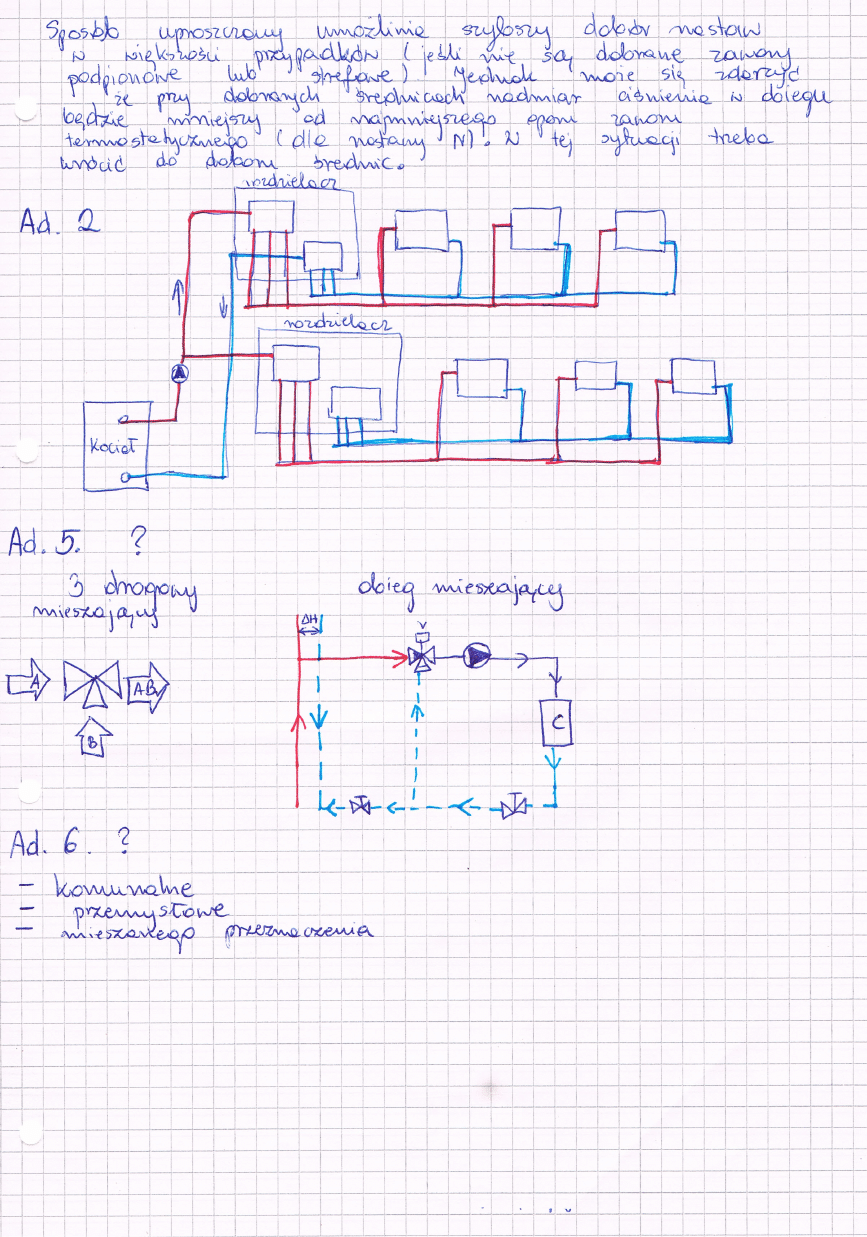 Sposób uproszczony umożliwia szybszy dobór nastaw
w większości przypadków (jeśli nie są dobrane zawory
podpionowe lub strefowe). Jednak może się zdarzyć
że przy dobranych średnicach nadmiar ciśnienia w obiegu
będzie mniejszy od najmniejszego oporu zaworu
termostatycznego (dla nastawy N). W tej sytuacji trzeba
wrócić do doboru średnic.
rozdzielacz
Ad. 2
rozdzielacz
Kocioł
Ad. 5. ?
3 drogowy
mieszający
obieg mieszający
ΔH
A
AB
B
C
Ad. 6. ?
- komunalne
- przemysłowe
- mieszanego przeznaczenia